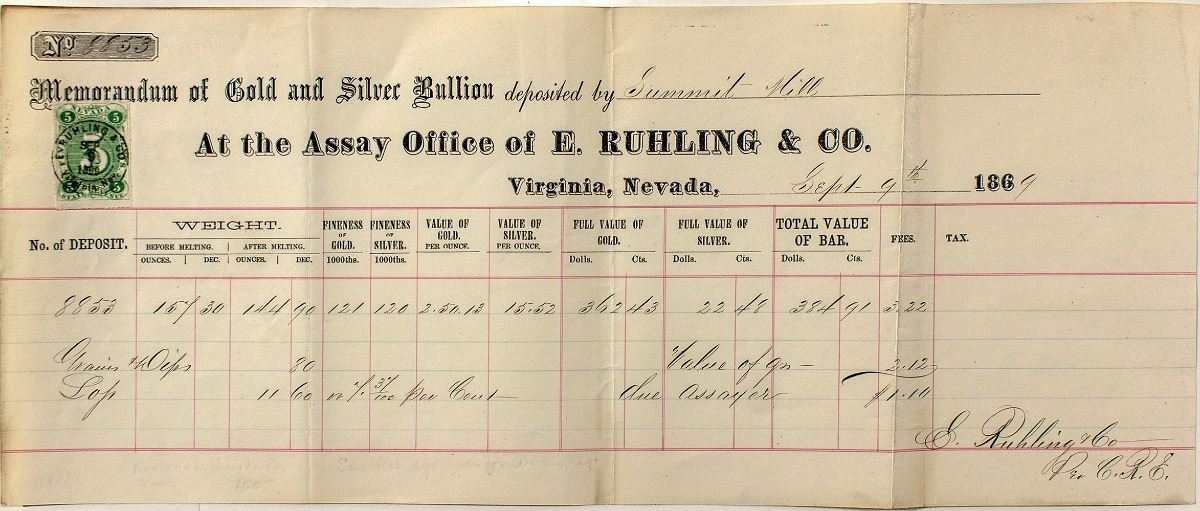 No 8853
Memorandum of Gold and Silver Bullion deposited by Summit Mill
At the Assay Office of E. RUHLING & CO.
Virginia, Nevada, Sept 9th 1869
5 NEVADA 5
E. RUHLING & CO.
SEP
9
1869
5 5
No. of DEPOSIT. WEIGHT. FINENESS OF GOLD. FINENESS OF SILVER. VALUE OF GOLD. PER OUNCE. VALUE OF SILVER. PER OUNCE. FULL VALUE OF GOLD. FULL VALUE OF SILVER. TOTAL VALUE OF BAR. FEES. TAX.
BEFORE MELTING. AFTER MELTING.
OUNCES. DEC. OUNCES. DEC. 1000ths. 1000ths. Dolls. Cts. Dolls. Cts. Dolls. Cts.
8853 157 30 144 90 121 120 2.50.13 15.52 362 43 22 48 384 91 3.22
Grains & Dips 80 Value of grs 2.12
Loss 11 60 or 7 37/100 per Cent due assayer $1.10
E. Ruhling & Co
Per C.R.E.